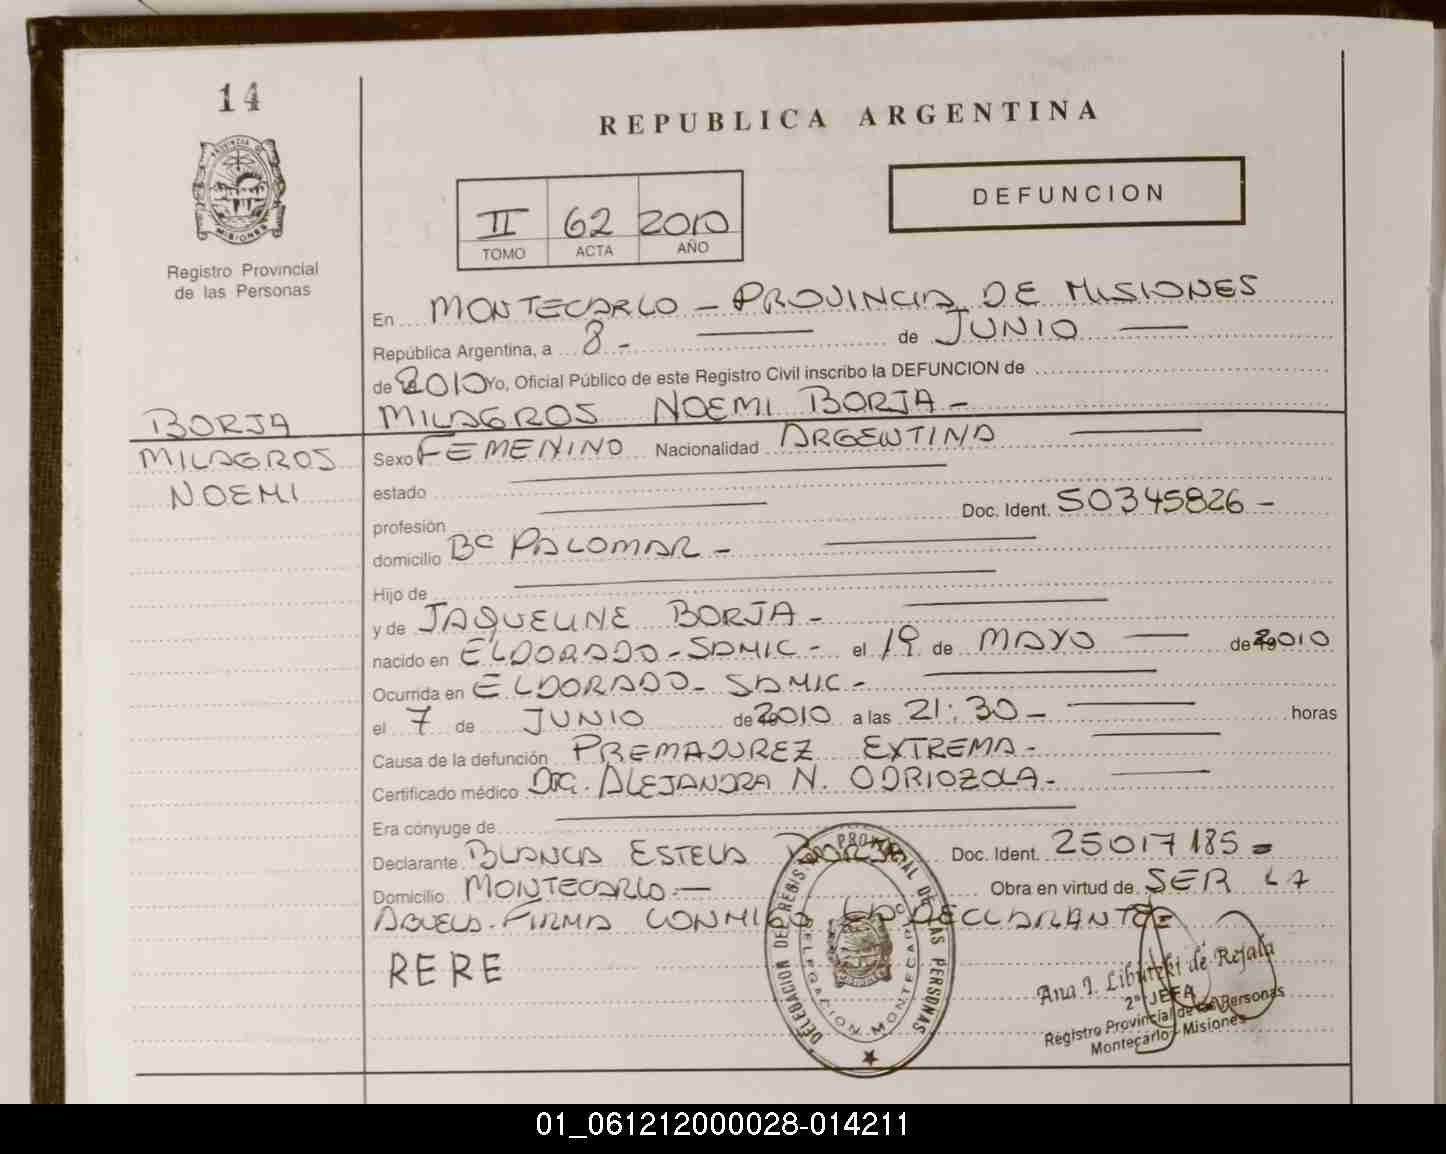 14
REPUBLICA ARGENTINA
DEFUNCION
II 62 2010
TOMO ACTA AÑO
PROVINCIA DE
MISIONES
Registro Provincial
de las Personas
En MONTECARLO - PROVINCIA DE MISIONES
República Argentina, a 8 - de JUNIO
de 2010 Yo, Oficial Público de este Registro Civil inscribo la DEFUNCION de
MILAGROS NOEMI BORJA -
BORJA
MILAGROS
NOEMI
Sexo FEMENINO Nacionalidad ARGENTINA
estado
profesión Doc. Ident. 50345826 -
domicilio Bº PALOMAR -
Hijo de
y de JAQUELINE BORJA -
nacido en ELDORADO - SAMIC - el 19 de MAYO de 2010
Ocurrida en ELDORADO - SAMIC -
el 7 de JUNIO de 2010 a las 21:30 - horas
Causa de la defunción PREMADUREZ EXTREMA -
Certificado médico DRA. ALEJANDRA N. ODRIOZOLA -
Era cónyuge de
Declarante BLANCA ESTELA BORJA Doc. Ident. 25017185 =
Domicilio MONTECARLO. - Obra en virtud de SER LA
ABUELA. FIRMA CONMIGO LA DECLARANTE =
RERE
DELEGACION DEL REGIS. PROVINCIAL DE LAS PERSONAS
DELEGACION MONTECARLO
Ana I. de Rejala
2ª JEFA
Registro Provincial de las Personas
Montecarlo - Misiones
01_061212000028-014211